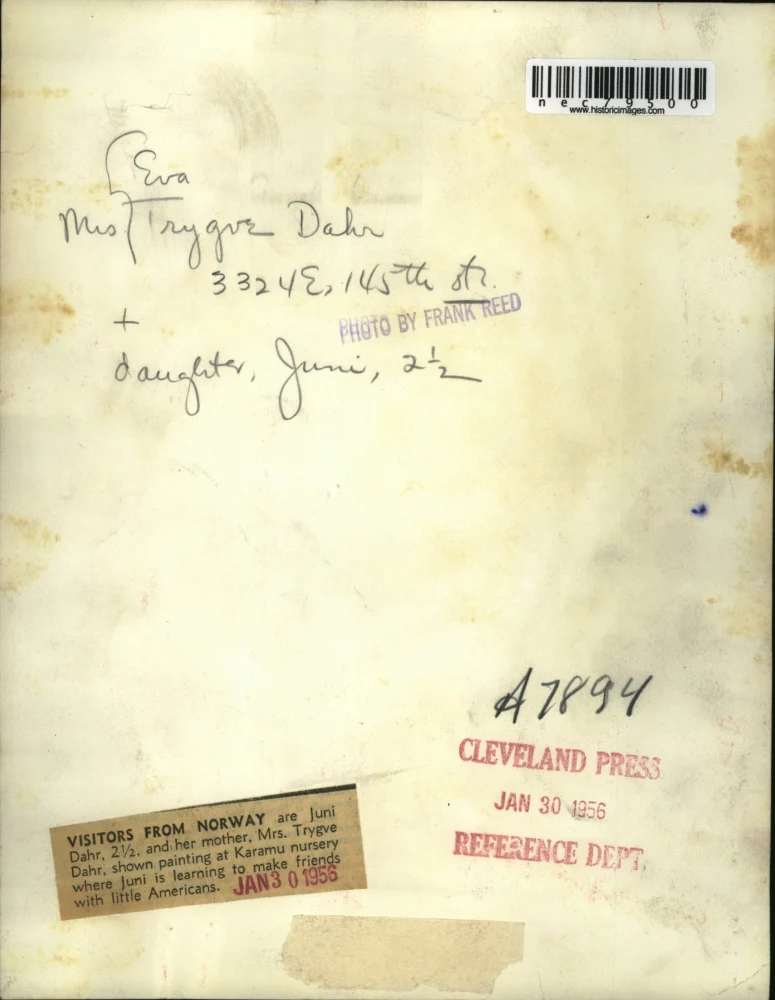 nec79500
www.historicimages.com
Eva
Mrs Trygve Dahr
3324 E, 145th str.
PHOTO BY FRANK REED
+
daughter, Juni, 2 1/2
A7894
CLEVELAND PRESS
JAN 30 1956
REFERENCE DEPT.
VISITORS FROM NORWAY are Juni
Dahr, 2½, and her mother, Mrs. Trygve
Dahr, shown painting at Karamu nursery
where Juni is learning to make friends
with little Americans. JAN 30 1956